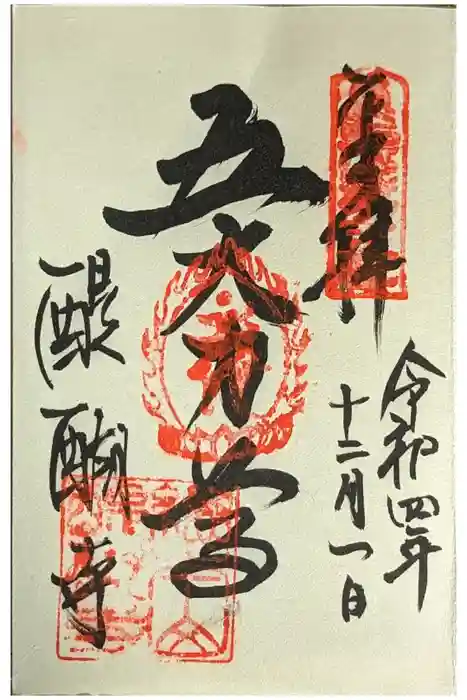 奉拝
令和四年
十二月一日
五大力尊
醍醐寺